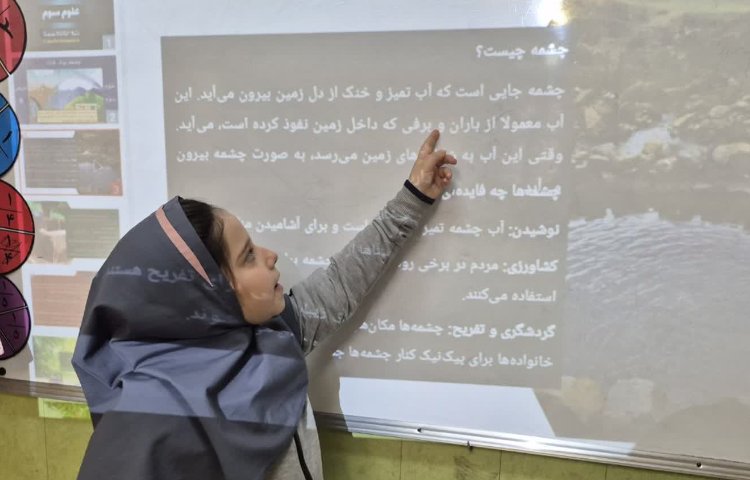 علوم سوم
چشمه چیست؟
چشمه جایی است که آب تمیز و خنک از دل زمین بیرون می‌آید. این
آب معمولا از باران و برفی که داخل زمین نفوذ کرده است، می‌آید.
وقتی این آب به های زمین می‌رسد، به صورت چشمه بیرون
می‌آید.
چشمه‌ها چه فایده‌
نوشیدن: آب چشمه تمیز است و برای آشامیدن
کشاورزی: مردم در برخی چشمه
استفاده می‌کنند.
گردشگری و تفریح: چشمه‌ها مکان‌ها
خانواده‌ها برای پیک‌نیک کنار چشمه‌ها
تفریح هستند